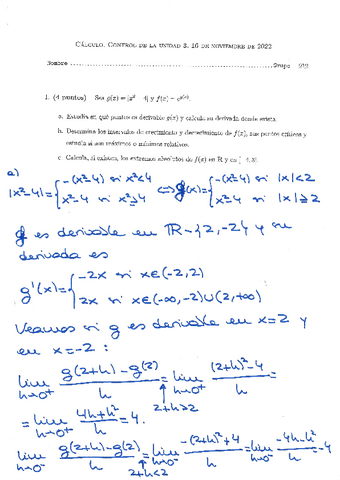 CÁLCULO. CONTROL DE LA UNIDAD 3. 16 DE NOVIEMBRE DE 2022
Nombre Grupo
1. (4 puntos) Sea g(x) = |x² − 4| y f(x) = e^{g(x)}.
a. Estudia en qué puntos es derivable g(x) y calcula su derivada donde exista.
b. Determina los intervalos de crecimiento y decrecimiento de f(x), sus puntos críticos y
estudia si son máximos o mínimos relativos.
c. Calcula, si existen, los extremos absolutos de f(x) en ℝ y en
a)
|x²-4| = { -(x²-4) si x²<4 ⇔ g(x) = { -(x²-4) si |x|<2
x²-4 si x²≥4 x²-4 si |x|≥2
g es derivable en ℝ-{2,-2} y su
derivada es
g'(x) = { -2x si x∈(-2,2)
2x si x∈(-∞,-2)∪(2,+∞)
Veamos si g es derivable en x=2 y
en x=-2 :
lim h→0⁺ g(2+h)-g(2) / h = lim h→0⁺ (2+h)²-4 / h =
2+h≥2
= lim h→0⁺ 4h+h² / h = 4.
lim h→0⁻ g(2+h)-g(2) / h = lim h→0⁻ -(2+h)²+4 / h = lim h→0⁻ -4h-h² / h = -4
2+h<2